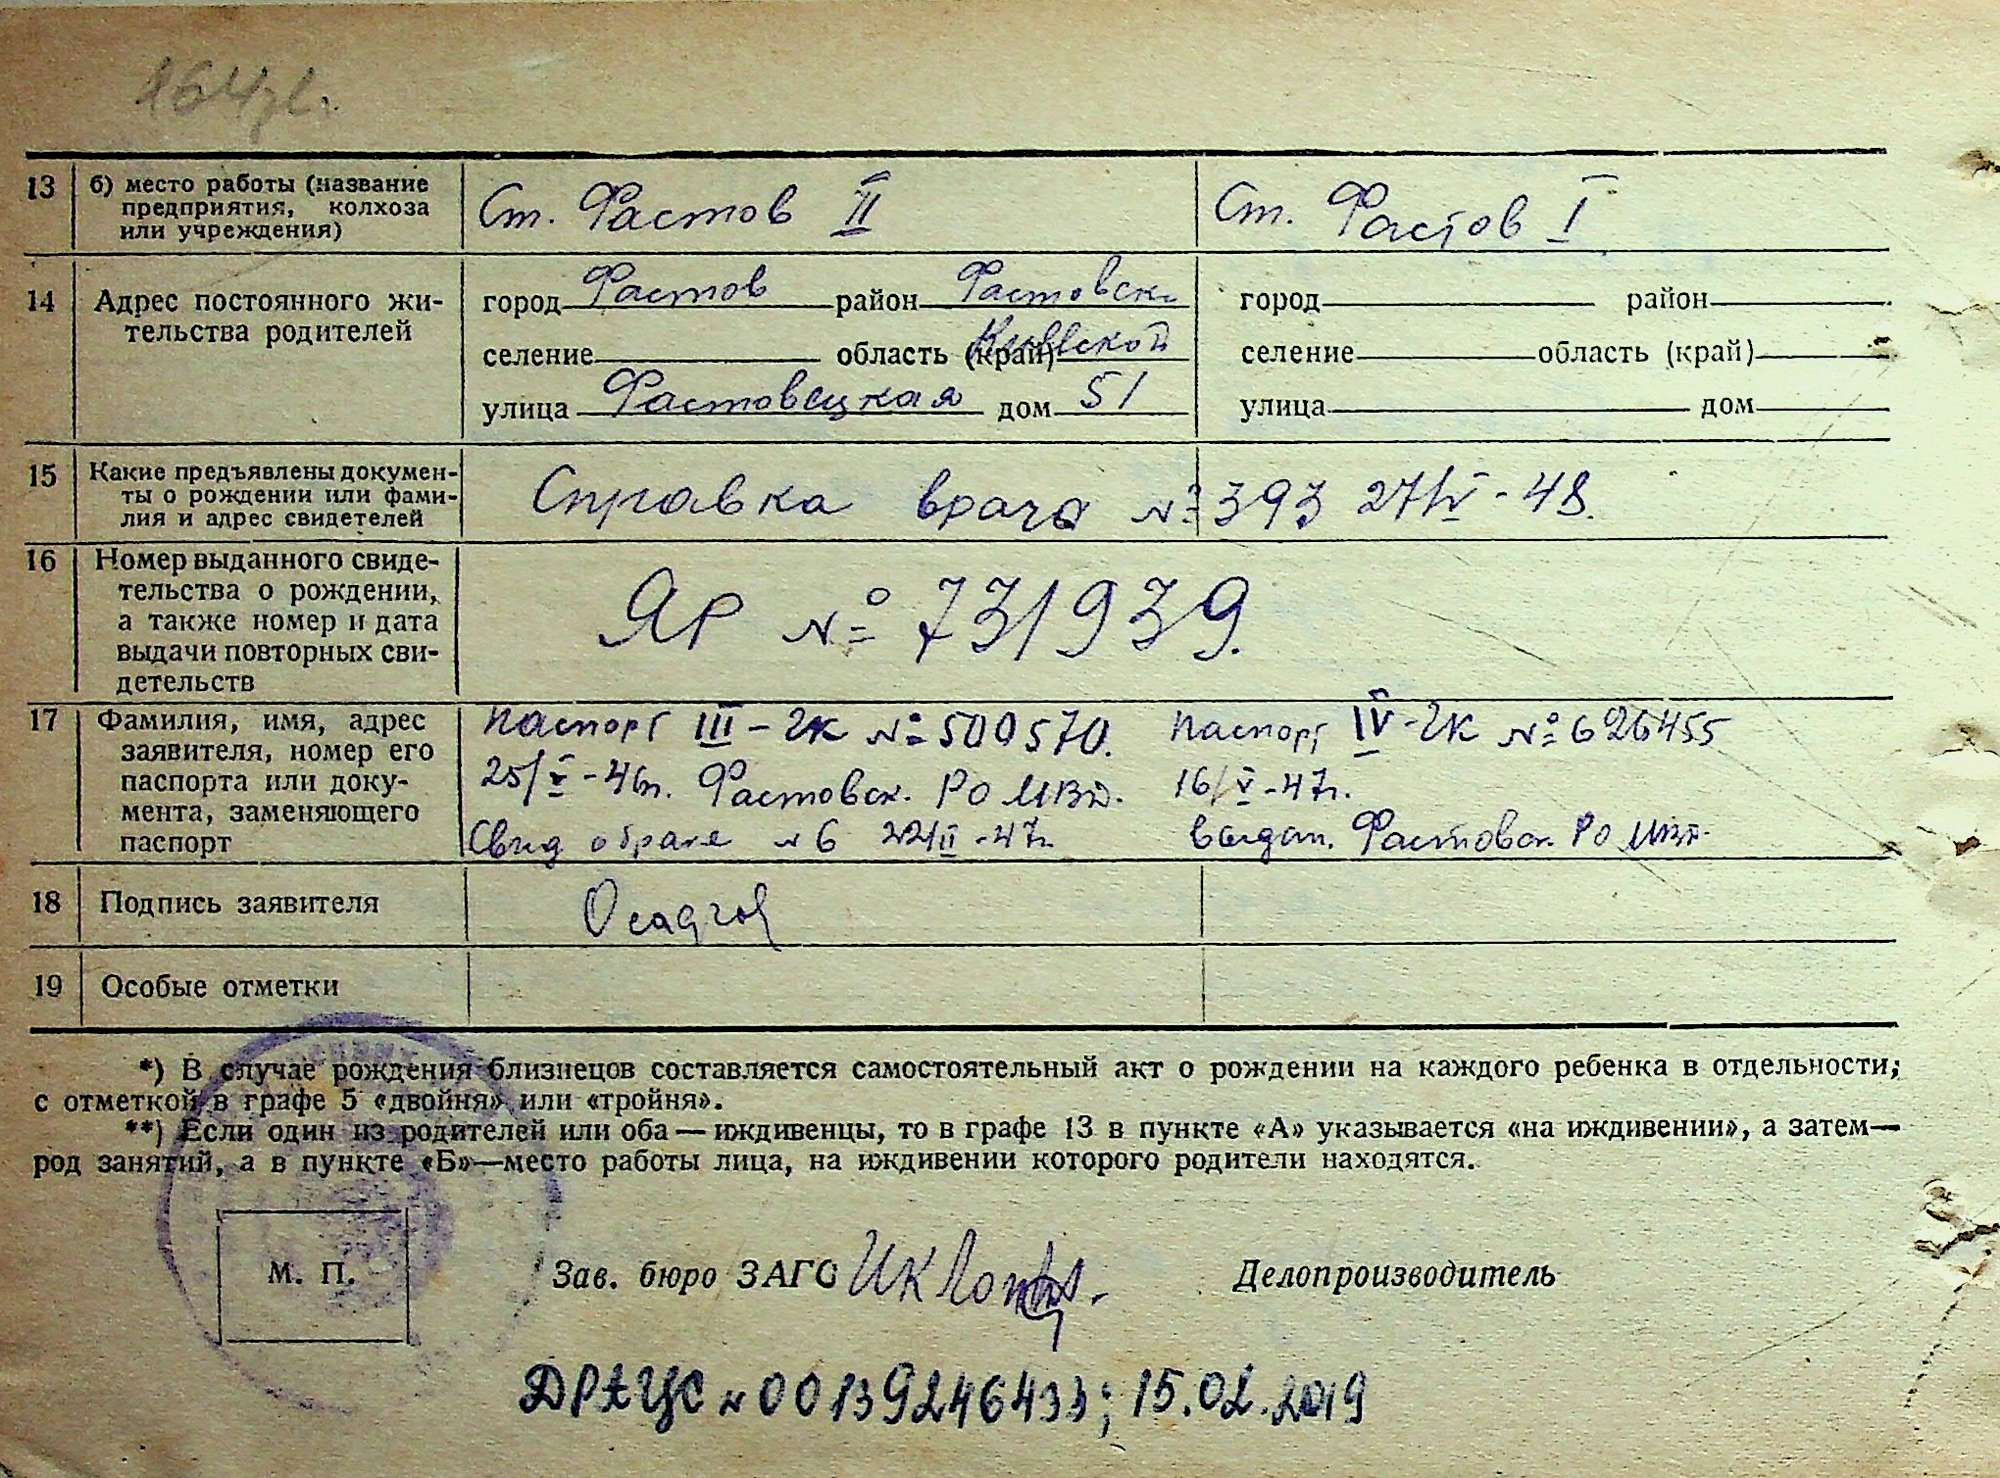 13 б) место работы (название Ст. Фастов II Ст. Фастов I
предприятия, колхоза
или учреждения)
14 Адрес постоянного жи- город Фастов район Фастовск. город район
тельства родителей
селение область (край) Киевской селение область (край)
улица Фастовецкая дом 51 улица дом
15 Какие предъявлены докумен-
ты о рождении или фами- Справка врача №393 27/IV-48.
лия и адрес свидетелей
16 Номер выданного свиде-
тельства о рождении,
а также номер и дата ЯР № 731939.
выдачи повторных сви-
детельств
17 Фамилия, имя, адрес Паспорт III-ЧК №500570. Паспорт IV-ЧК №626455
заявителя, номер его
паспорта или доку- 25/V-46г. Фастовск. РО МВД. 16/V-47г.
мента, заменяющего
паспорт Свид о браке №6 22/II-47г выдан. Фастовск. РО МВД.
18 Подпись заявителя
19 Особые отметки
*) В случае рождения близнецов составляется самостоятельный акт о рождении на каждого ребенка в отдельности,
с отметкой в графе 5 «двойня» или «тройня».
**) Если один из родителей или оба — иждивенцы, то в графе 13 в пункте «А» указывается «на иждивении», а затем—
род занятий, а в пункте «Б»—место работы лица, на иждивении которого родители находятся.
М. П. Зав. бюро ЗАГС Делопроизводитель
ДРАЦС №00139246433; 15.02.2019